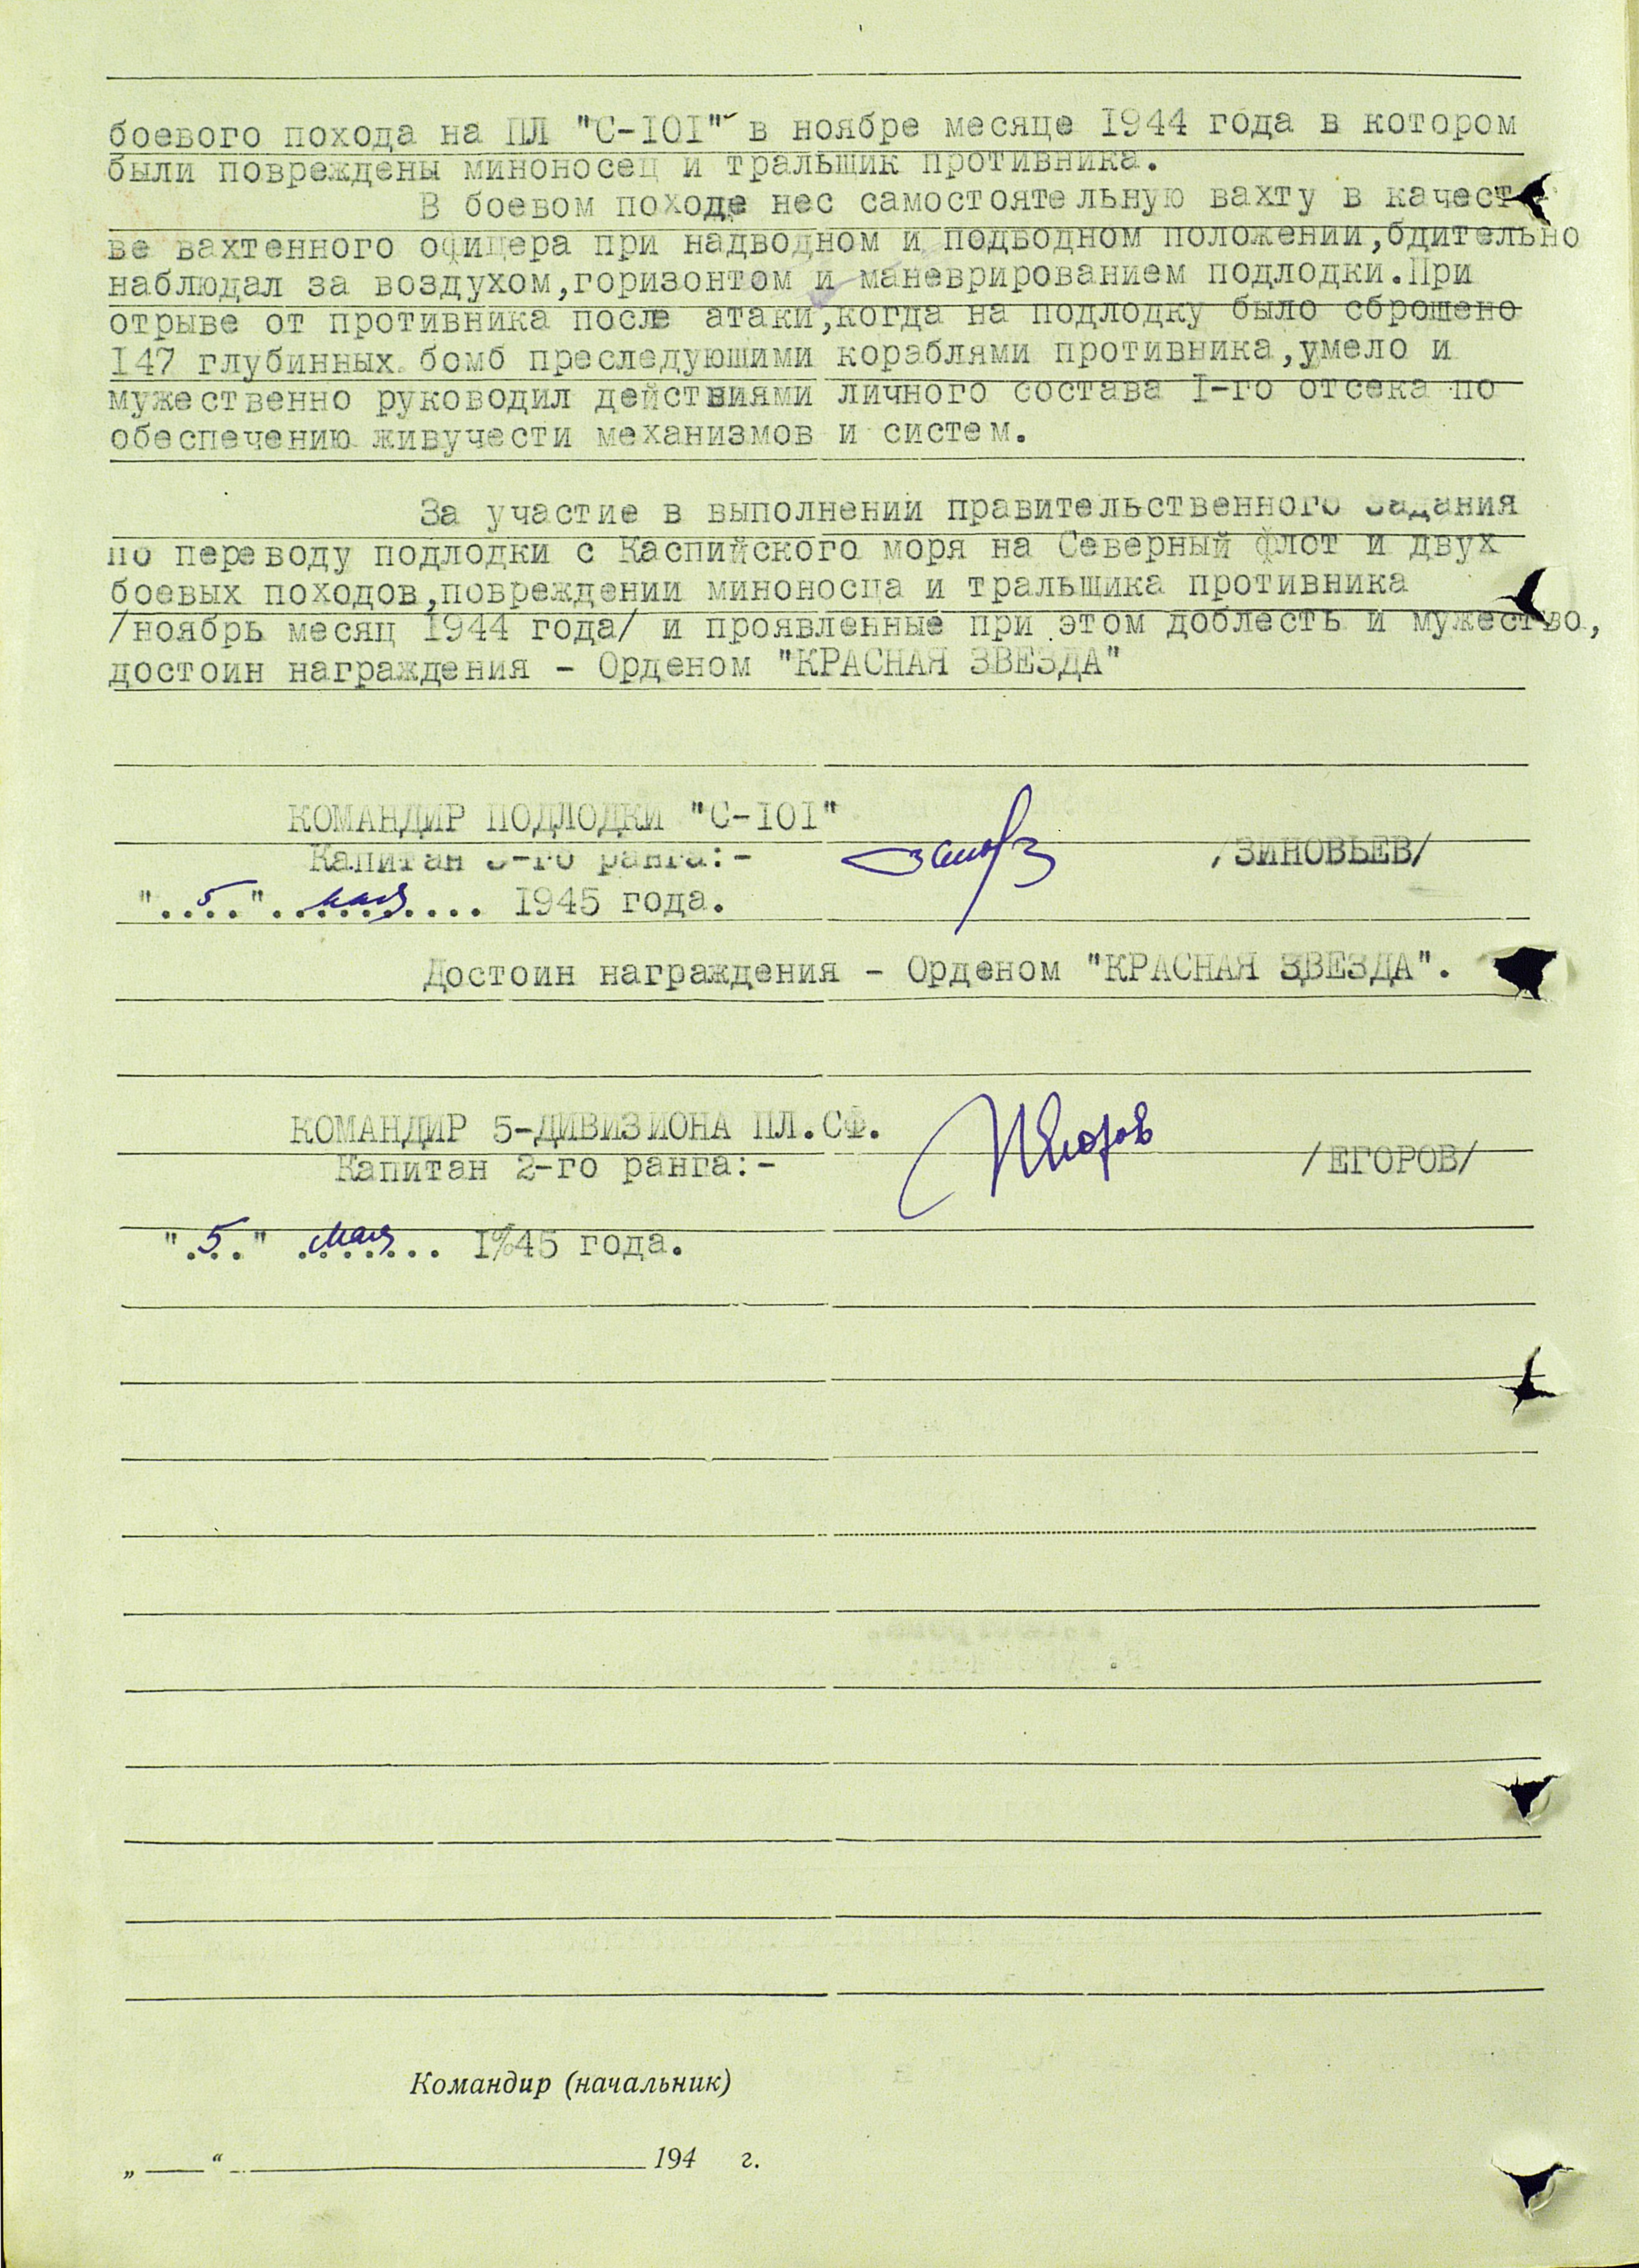 боевого похода на ПЛ "С-101" в ноябре месяце 1944 года в котором
были повреждены миноносец и тральщик противника.
В боевом походе нес самостоятельную вахту в качест-
ве вахтенного офицера при надводном и подводном положении,бдительно
наблюдал за воздухом,горизонтом и маневрированием подлодки.При
отрыве от противника после атаки,когда на подлодку было сброшено
147 глубинных бомб преследующими кораблями противника,умело и
мужественно руководил действиями личного состава 1-го отсека по
обеспечению живучести механизмов и систем.
За участие в выполнении правительственного задания
по переводу подлодки с Каспийского моря на Северный флот и двух
боевых походов,повреждении миноносца и тральщика противника
/ноябрь месяц 1944 года/ и проявленные при этом доблесть и мужество,
достоин награждения - Орденом "КРАСНАЯ ЗВЕЗДА"
КОМАНДИР ПОДЛОДКИ "С-101"
Капитан 3-го ранга:- /ЗИНОВЬЕВ/
"..5.." мая 1945 года.
Достоин награждения - Орденом "КРАСНАЯ ЗВЕЗДА".
КОМАНДИР 5-ДИВИЗИОНА ПЛ.СФ.
Капитан 2-го ранга:- /ЕГОРОВ/
".5.." мая 1%45 года.
Командир (начальник)
„ “ 194 г.